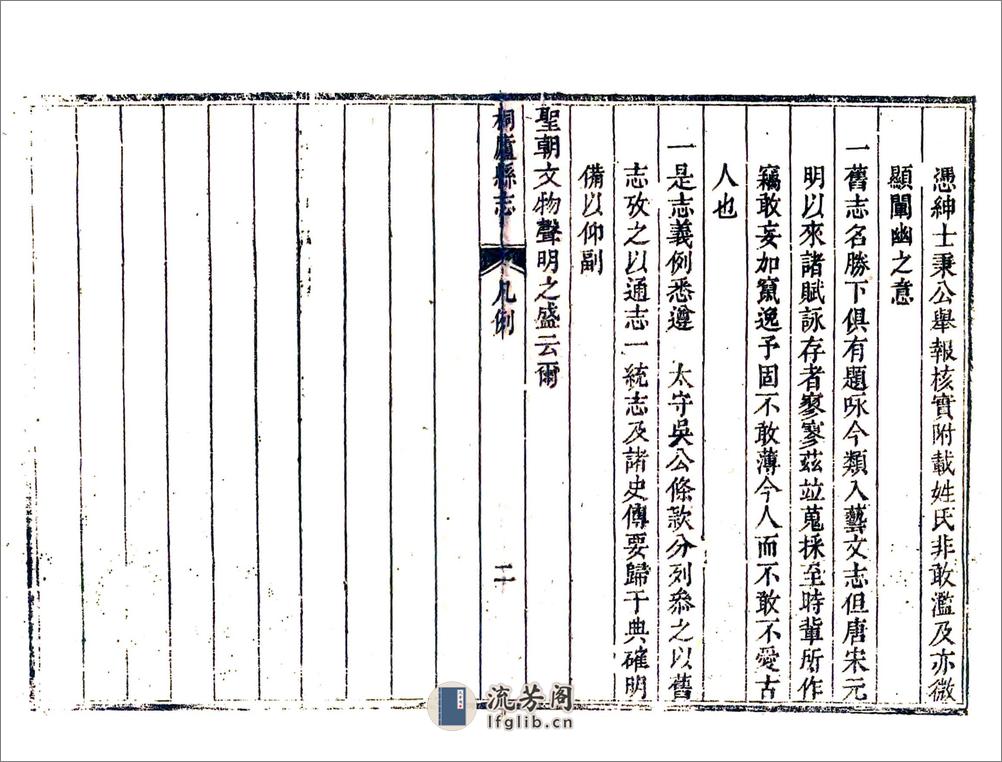 憑紳士秉公舉報核實附載姓氏非敢濫及亦微
顯闡幽之意
一舊志名勝下俱有題咏今類入藝文志但唐宋元
明以來諸賦詠存者寥寥茲竝蒐採至時輩所作
竊敢妄加竄逸予固不敢薄今人而不敢不愛古
人也
一是志義例悉遵 太守吳公條款分列叅之以舊
志攷之以通志一統志及諸史傳要歸于典確明
備以仰副
聖朝文物聲明之盛云爾
桐廬縣志 凡例 二
流芳阁
lfglib.cn